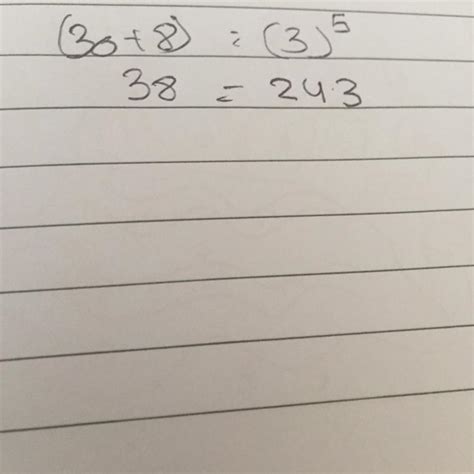 (30+8) = (3)⁵
38 = 243